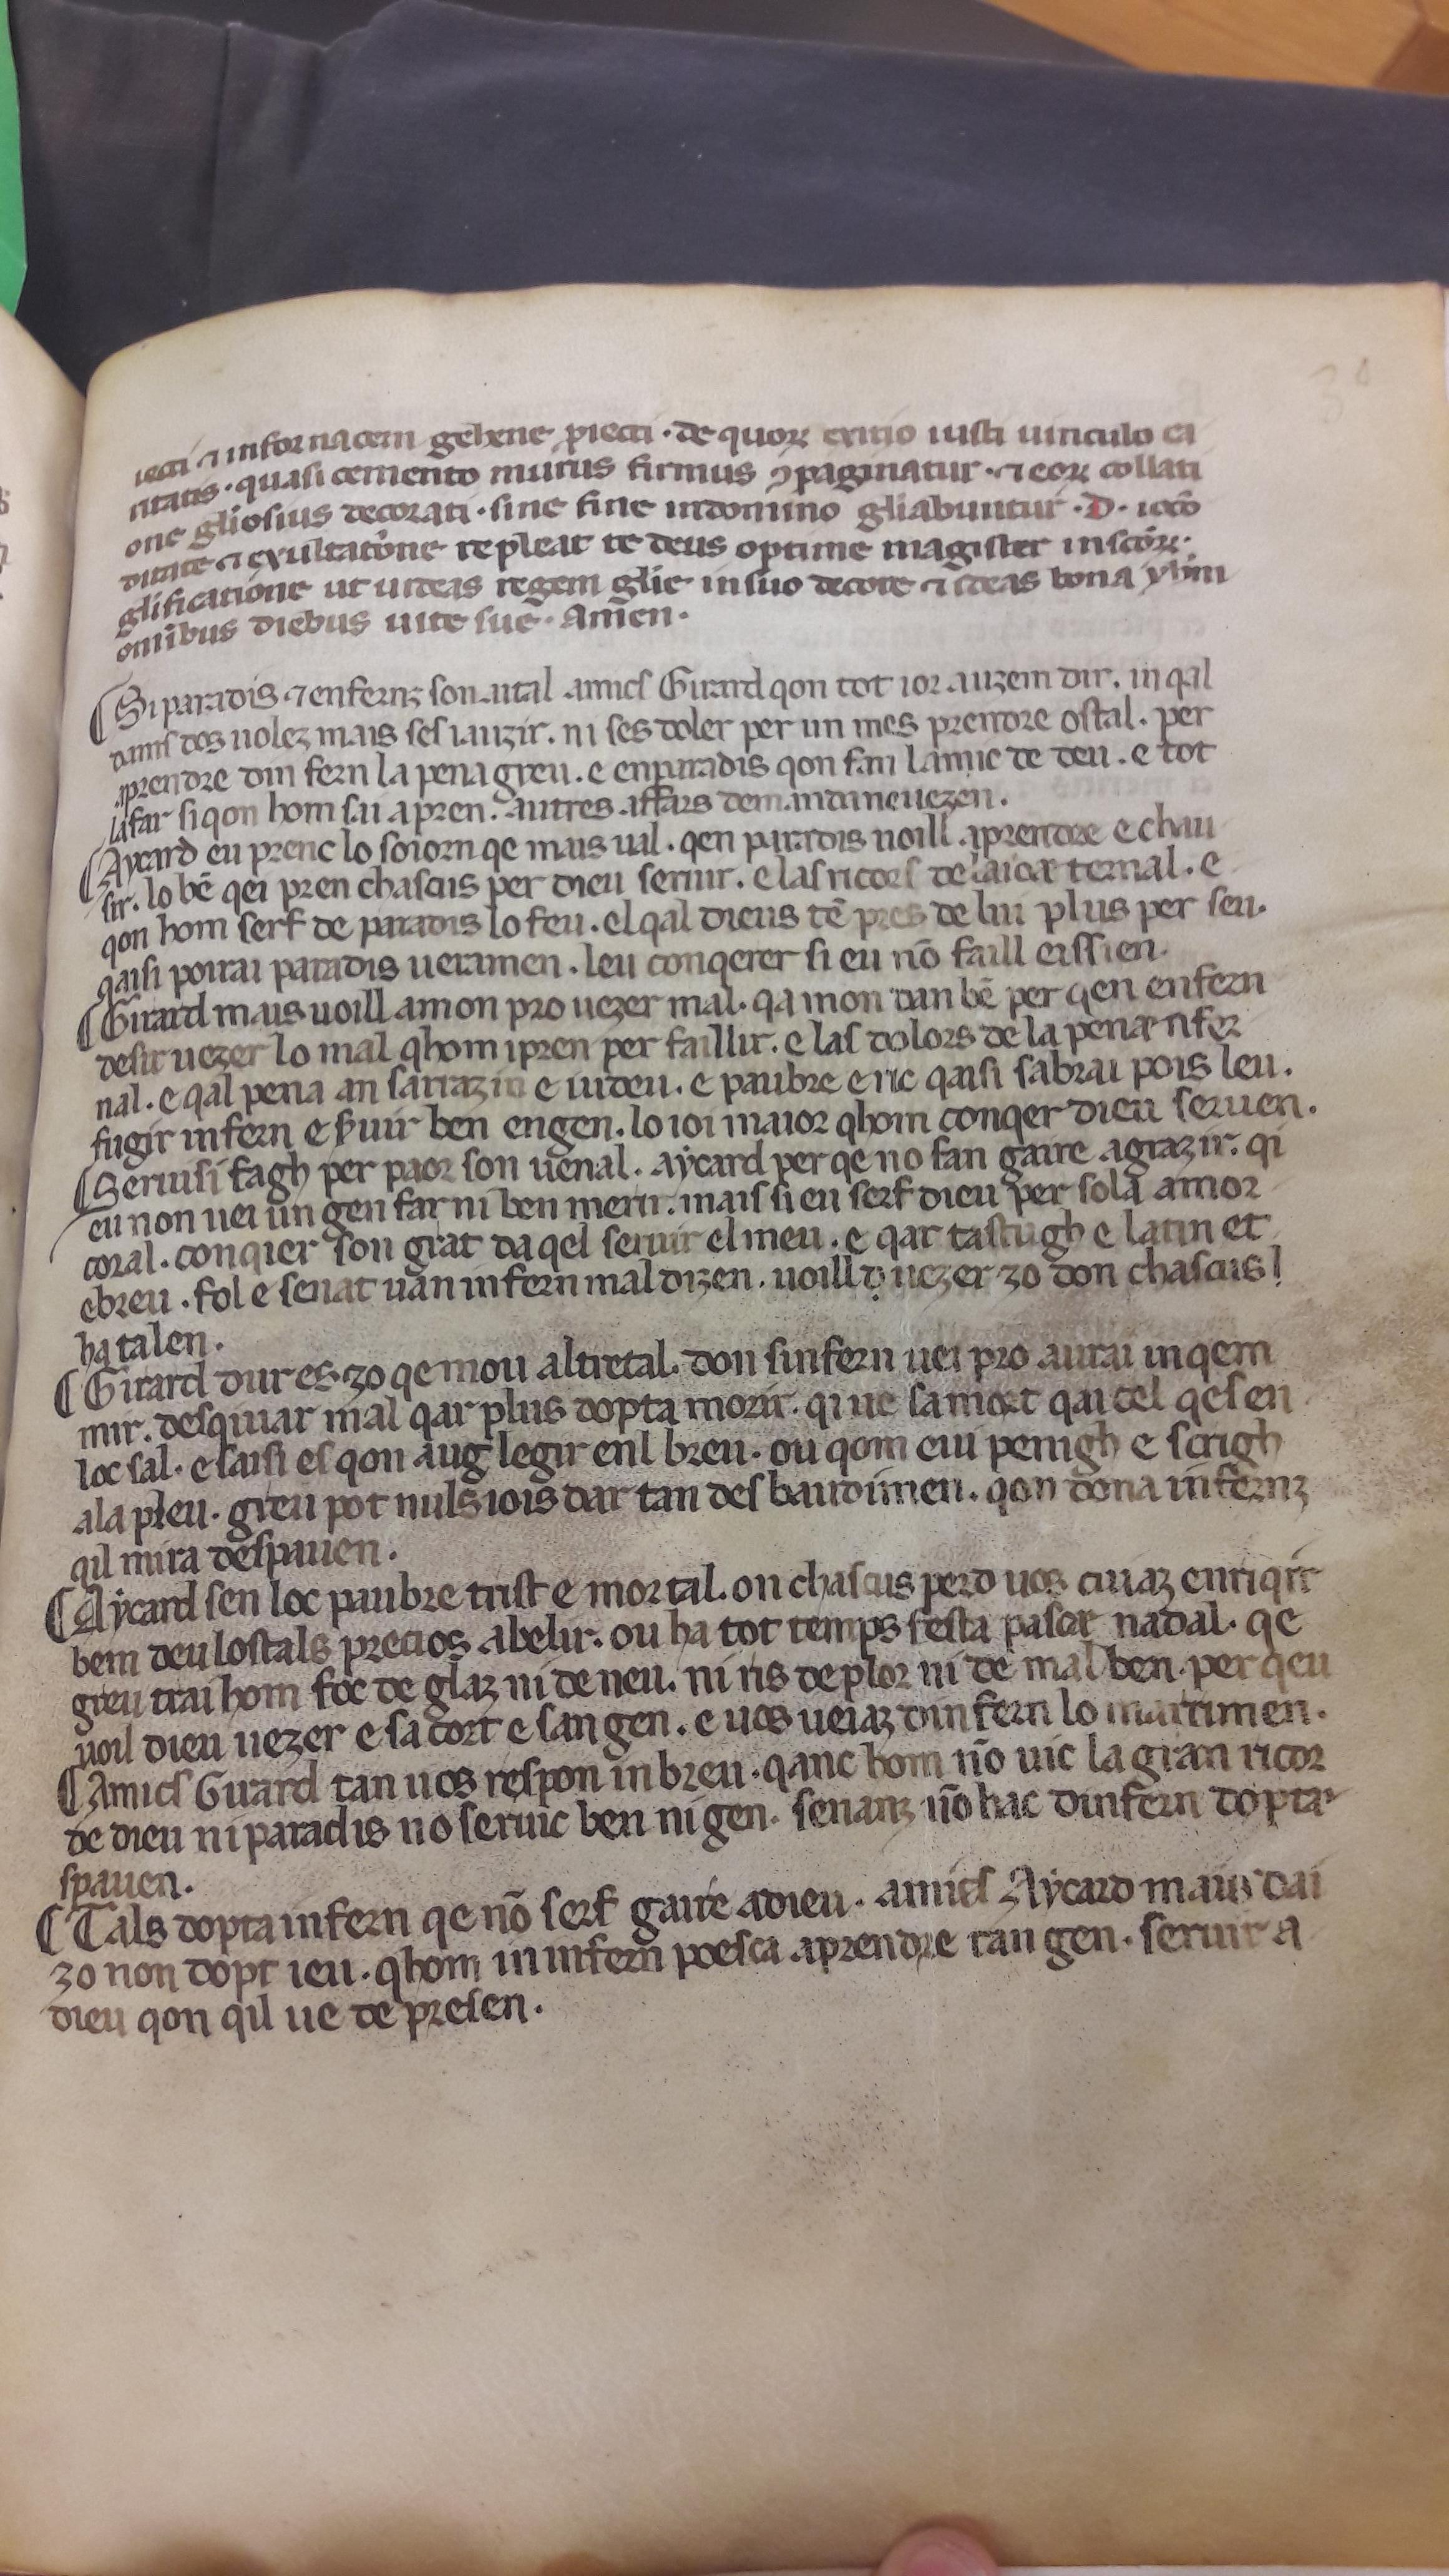 iecti ⁊ infornacem gehene ꝓiecti · de quoꝝ exitio iusti uinculo ca
ritatis · quasi cemento murus firmus ꝯpaginatur · ⁊ eoꝝ collati
one gl̄iosius decorati · sine fine indomino gl̄iabuntur · D · iocō
ditate ⁊ exultatōne repleat te deus optime magister in scōꝝ ·
gl̄ificatione ut uideas regem glīe insuo decore ⁊ uideas bona yhrm
om̄ibus diebus uite sue · Am̄en ·
¶ Si paradis ⁊ enfernz son aital amics Girard qon tot ior auzem dir . in qal
dams dos uolez mais ses iauzir . ni ses doler per un mes prendre ostal . per
aprendre din fern la pena greu . e enparadis qon fan lamic de deu . e tot
lafar si qon hom sai apren . autres affars demandineuezen .
¶ Aycard eu prenc lo soiorn qe mais ual . qen paradis uoill aprendre e chau
sir . lo bē qei pren chascus per dieu seruir . e las ricors de laioæternal . e
qon hom serf de paradis lo feu . el qal dieus tē pres de lui plus per seu .
qaisi poirai paradis ueramen . leu conqerer si eu nō faill eissien .
¶ Girard mais uoill amon pro uezer mal . qa mon dan bē per qen enfern
desir uezer lo mal qhom ipren per faillir . e las dolors de la penænfer
nal . e qal pena an sarrazin e iudeu . e paubre e ric qaisi sabrai pois leu .
fugir infern e ꝑuir ben engen . lo ioi maior qhom conqer dieu seruen .
¶ Seruisi fagh per paor son uenal . aycard per qe no fan gaire agrazir . qi
eu non uei un gen far ni ben merir . mais si eu serf dieu per sola amor
coral . conqier son grat da qel seruir el meu . e qar tastugh e latin et
ebreu . fol e senat uan infern mal dizen . uoill uezer zo don chascus
ha talen .
¶ Girard dur es zo qe mou altretal . don sinfern uei pro aurai inqem
mir . desquiar mal qar plus dopta morir . qi ue sa mort qaicel qes en
loc sal . e saisi es qon aug legir enl breu . ou qom ciu penigh e scrigh
ala pleu . greu pot nuls iois dar tan des baudimen . qon dona infernz
qil mira despauen .
¶ Aycard sen loc paubre trist e mortal . on chascus perd uos cuiaz enriqir
bem deu lostals precios abelir . ou ha tot temps festa pascæ nadal . qe
greu trai hom foc de glaz ni de neu . ni ris de plor ni de mal ben . per qeu
uoil dieu uezer e sa cort e san gen . e uos ueiaz dinfern lo marrimen .
¶ Amics Girard tan uos respon in breu . qanc hom nō uic la gran ricor
de dieu ni paradis no seruic ben ni gen . senanz nō hac dinfern dopta
spauen .
¶ Tals dopta infern qe nō serf gaire adieu . amics Aycard mais dai
zo non dopt ieu . qhom in infern poesca aprendre tan gen . seruir a
dieu qon qil ue de presen .